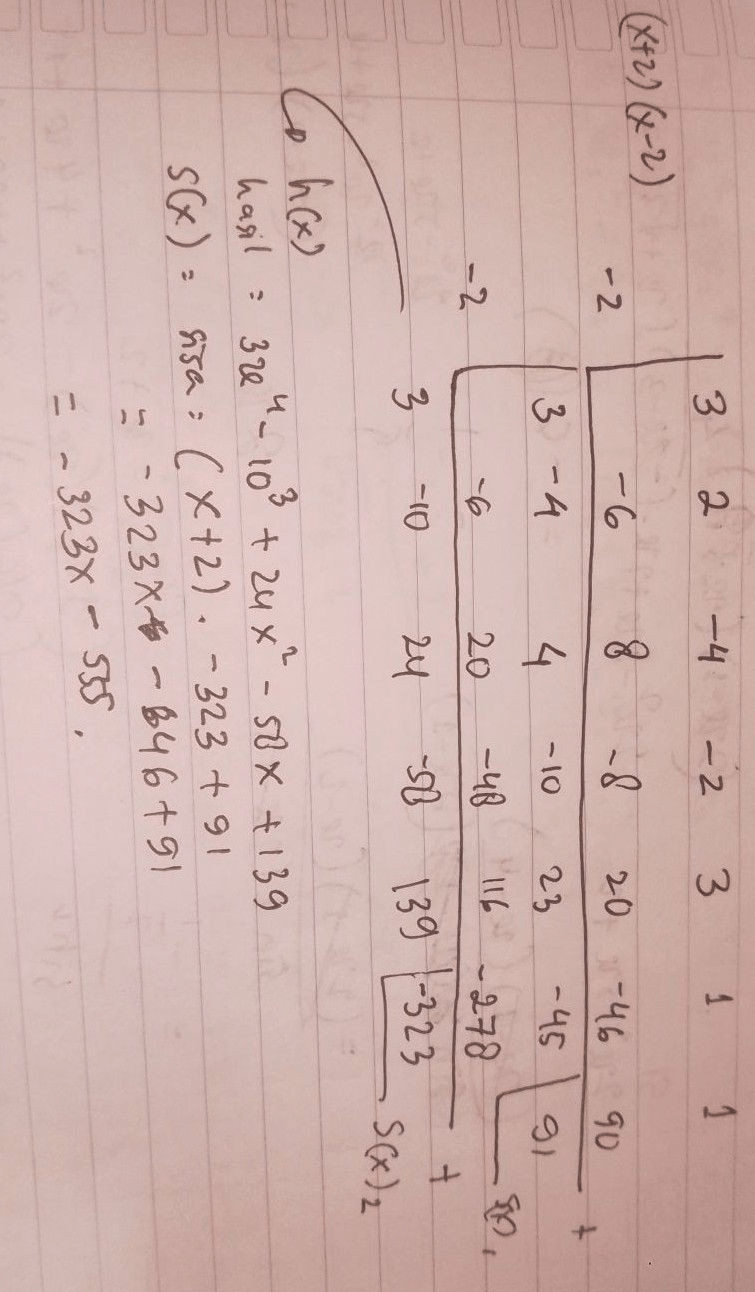 3 2 -4 -2 3 1 1
(x+2)(x-2) -2 -6 8 -8 20 -46 90 +
3 -4 4 -10 23 -45 91
-2 -6 20 -48 116 -278 +
3 -10 24 -58 139 -323 S(x)₂
h(x)
hasil = 3x⁴ - 10³ + 24x² - 58x + 139
S(x) = sisa = (x+2) . -323 + 91
= -323x - 646 + 91
= -323x - 555.